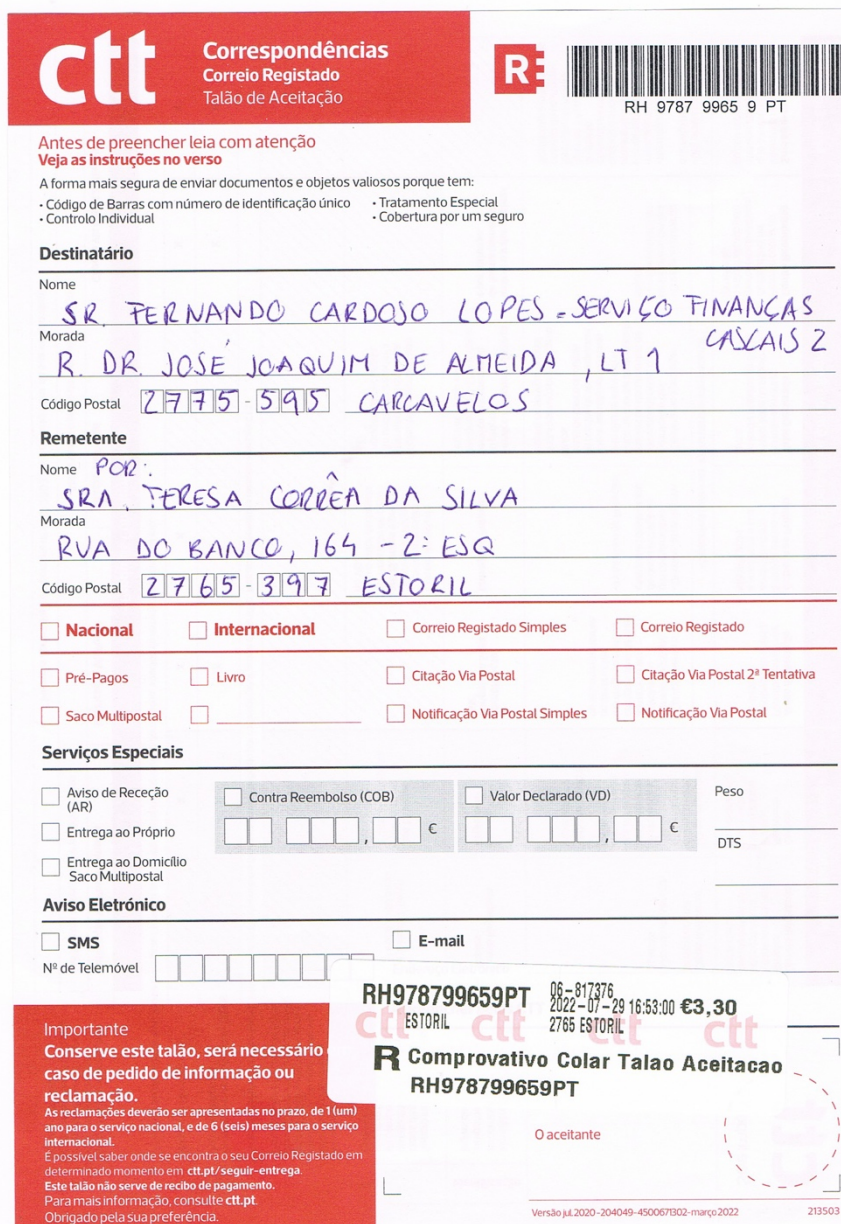 ctt
Correspondências
Correio Registado
Talão de Aceitação
R
RH 9787 9965 9 PT
Antes de preencher leia com atenção
Veja as instruções no verso
A forma mais segura de enviar documentos e objetos valiosos porque tem:
• Código de Barras com número de identificação único • Tratamento Especial
• Controlo Individual • Cobertura por um seguro
Destinatário
Nome
SR. FERNANDO CARDOSO LOPES - SERVIÇO FINANÇAS
CASCAIS 2
Morada
R. DR. JOSÉ JOAQUIM DE ALMEIDA, LT 1
Código Postal 2775-595 CARCAVELOS
Remetente
Nome POR:
SRA. TERESA CORRÊA DA SILVA
Morada
RUA DO BANCO, 164 - 2º ESQ
Código Postal 2765-397 ESTORIL
Nacional Internacional Correio Registado Simples Correio Registado
Pré-Pagos Livro Citação Via Postal Citação Via Postal 2ª Tentativa
Saco Multipostal Notificação Via Postal Simples Notificação Via Postal
Serviços Especiais
Aviso de Receção
(AR)
Contra Reembolso (COB) Valor Declarado (VD) Peso
Entrega ao Próprio , € , €
DTS
Entrega ao Domicílio
Saco Multipostal
Aviso Eletrónico
SMS E-mail
Nº de Telemóvel
RH978799659PT 06-817376
2022-07-29 16:53:00 €3,30
ESTORIL 2765 ESTORIL
ctt ctt ctt ctt
R Comprovativo Colar Talao Aceitacao
RH978799659PT
Importante
Conserve este talão, será necessário
caso de pedido de informação ou
reclamação.
As reclamações deverão ser apresentadas no prazo, de 1 (um)
ano para o serviço nacional, e de 6 (seis) meses para o serviço
internacional.
É possível saber onde se encontra o seu Correio Registado em
determinado momento em ctt.pt/seguir-entrega.
Este talão não serve de recibo de pagamento.
Para mais informação, consulte ctt.pt.
Obrigado pela sua preferência.
O aceitante
Versão jul.2020-204049-4500671302-março 2022 213503